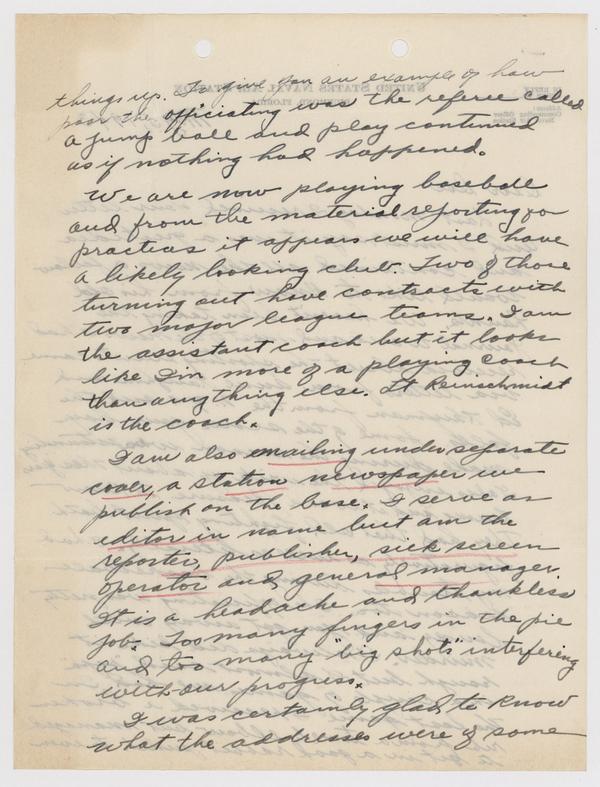 things up. To give you an example of how
poor the officiating was the referee called
a jump ball and play continued
as if nothing had happened.
We are now playing baseball
and from the material reporting for
practices it appears we will have
a likely looking club. Two of those
turning out have contracts with
two major league teams. I am
the assistant coach but it looks
like I'm more of a playing coach
than anything else. Lt Reinschmidt
is the coach.
I am also mailing under separate
cover, a station newspaper we
publish on the base. I serve as
editor in name but am the
reporter, publisher, sick screen
operator and general manager.
It is a headache and thankless
job. Too many fingers in the pie
and too many "big shots" interfering
with our progress.
I was certainly glad to know
what the addresses were of some